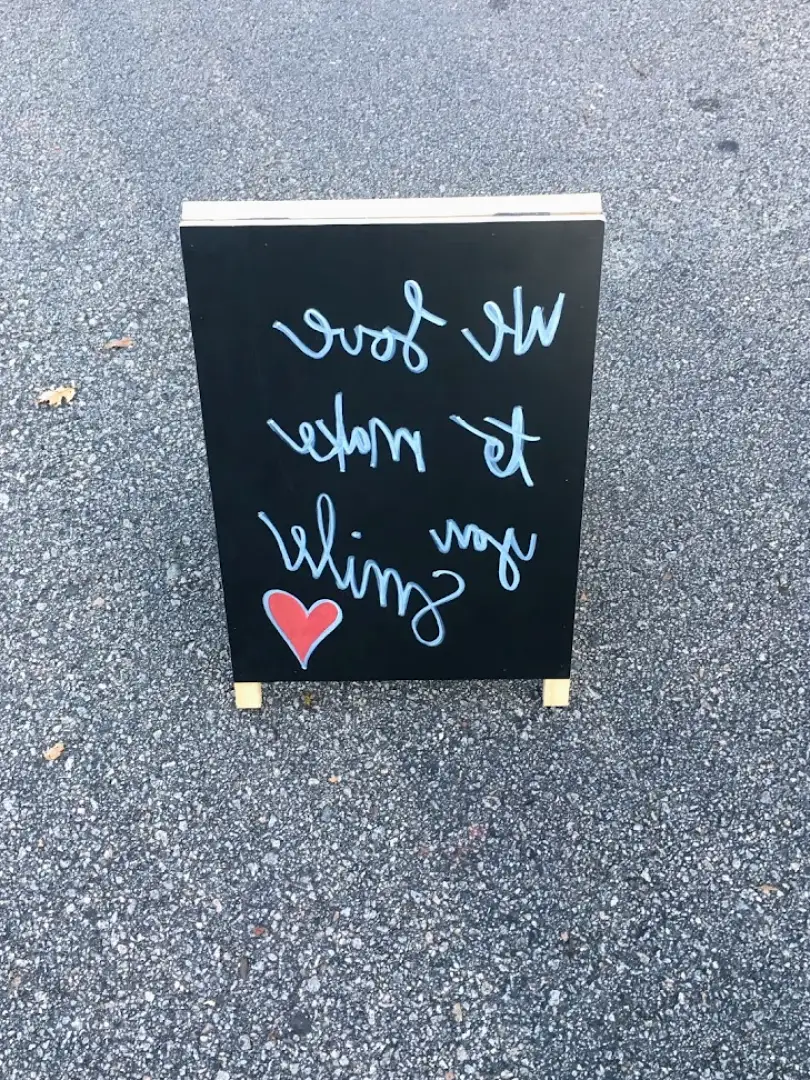 We love
to make
you
smile